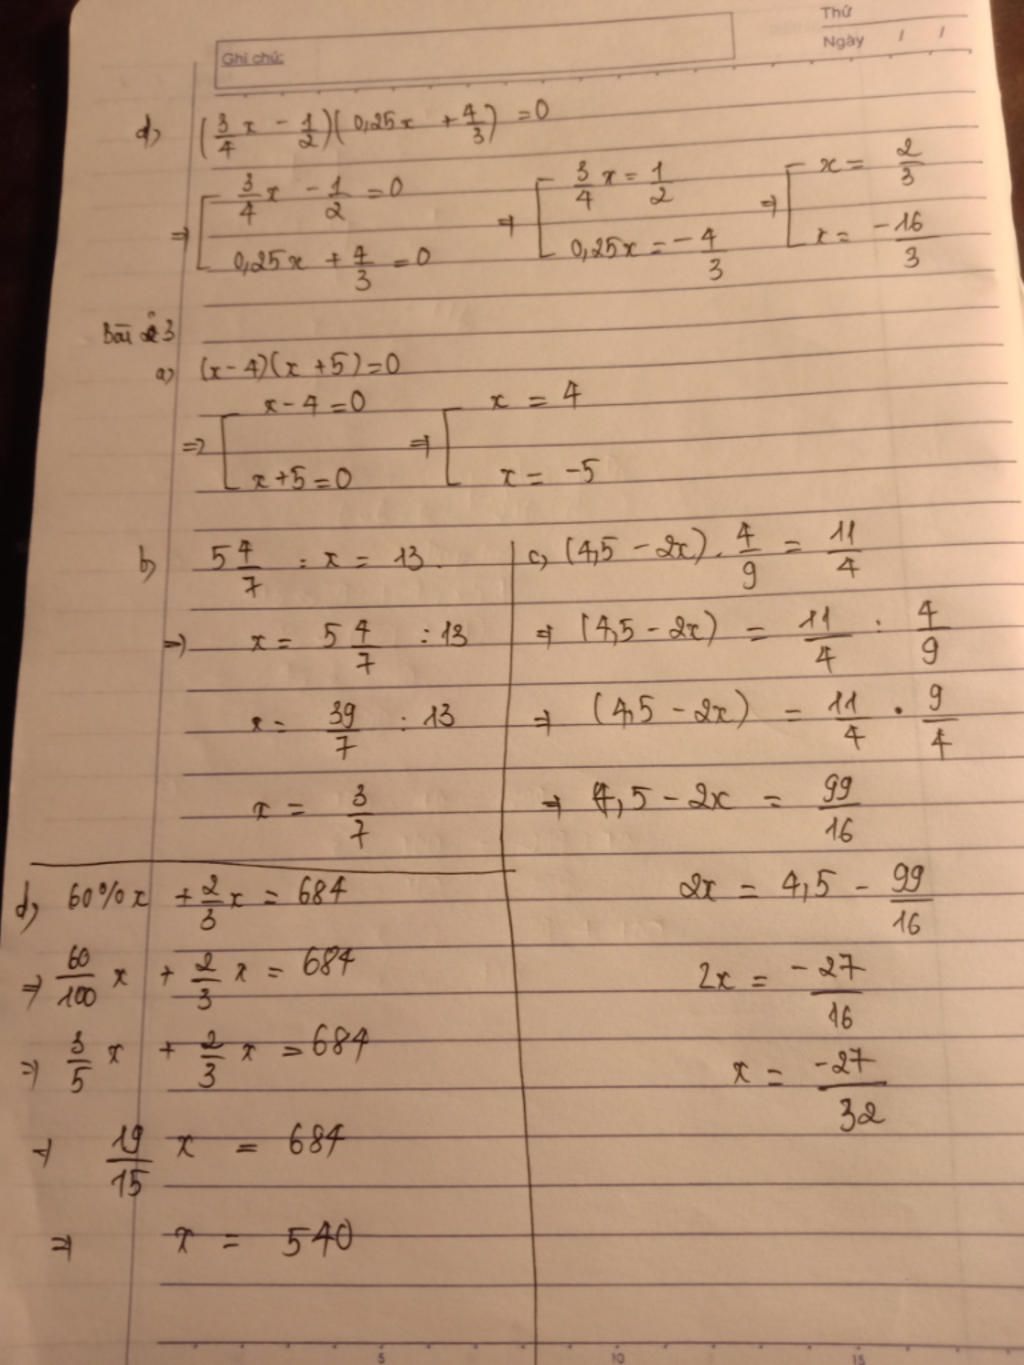 Thứ
Ngày / /
Ghi chú:
d, (3/4 x - 1/2)(0,25x + 4/3) = 0
⇒ [ 3/4 x - 1/2 = 0 ⇒ [ 3/4 x = 1/2 ⇒ [ x = 2/3
0,25x + 4/3 = 0 0,25x = -4/3 x = -16/3
Bài 3
a, (x - 4)(x + 5) = 0
⇒ [ x - 4 = 0 ⇒ [ x = 4
x + 5 = 0 x = -5
b, 5 4/7 : x = 13.
⇒ x = 5 4/7 : 13
x = 39/7 : 13
x = 3/7
c, (4,5 - 2x) . 4/9 = 11/4
⇒ (4,5 - 2x) = 11/4 : 4/9
⇒ (4,5 - 2x) = 11/4 . 9/4
⇒ 4,5 - 2x = 99/16
2x = 4,5 - 99/16
2x = -27/16
x = -27/32
d, 60% x + 2/3 x = 684
⇒ 60/100 x + 2/3 x = 684
⇒ 3/5 x + 2/3 x = 684
⇒ 19/15 x = 684
⇒ x = 540
5 10 15